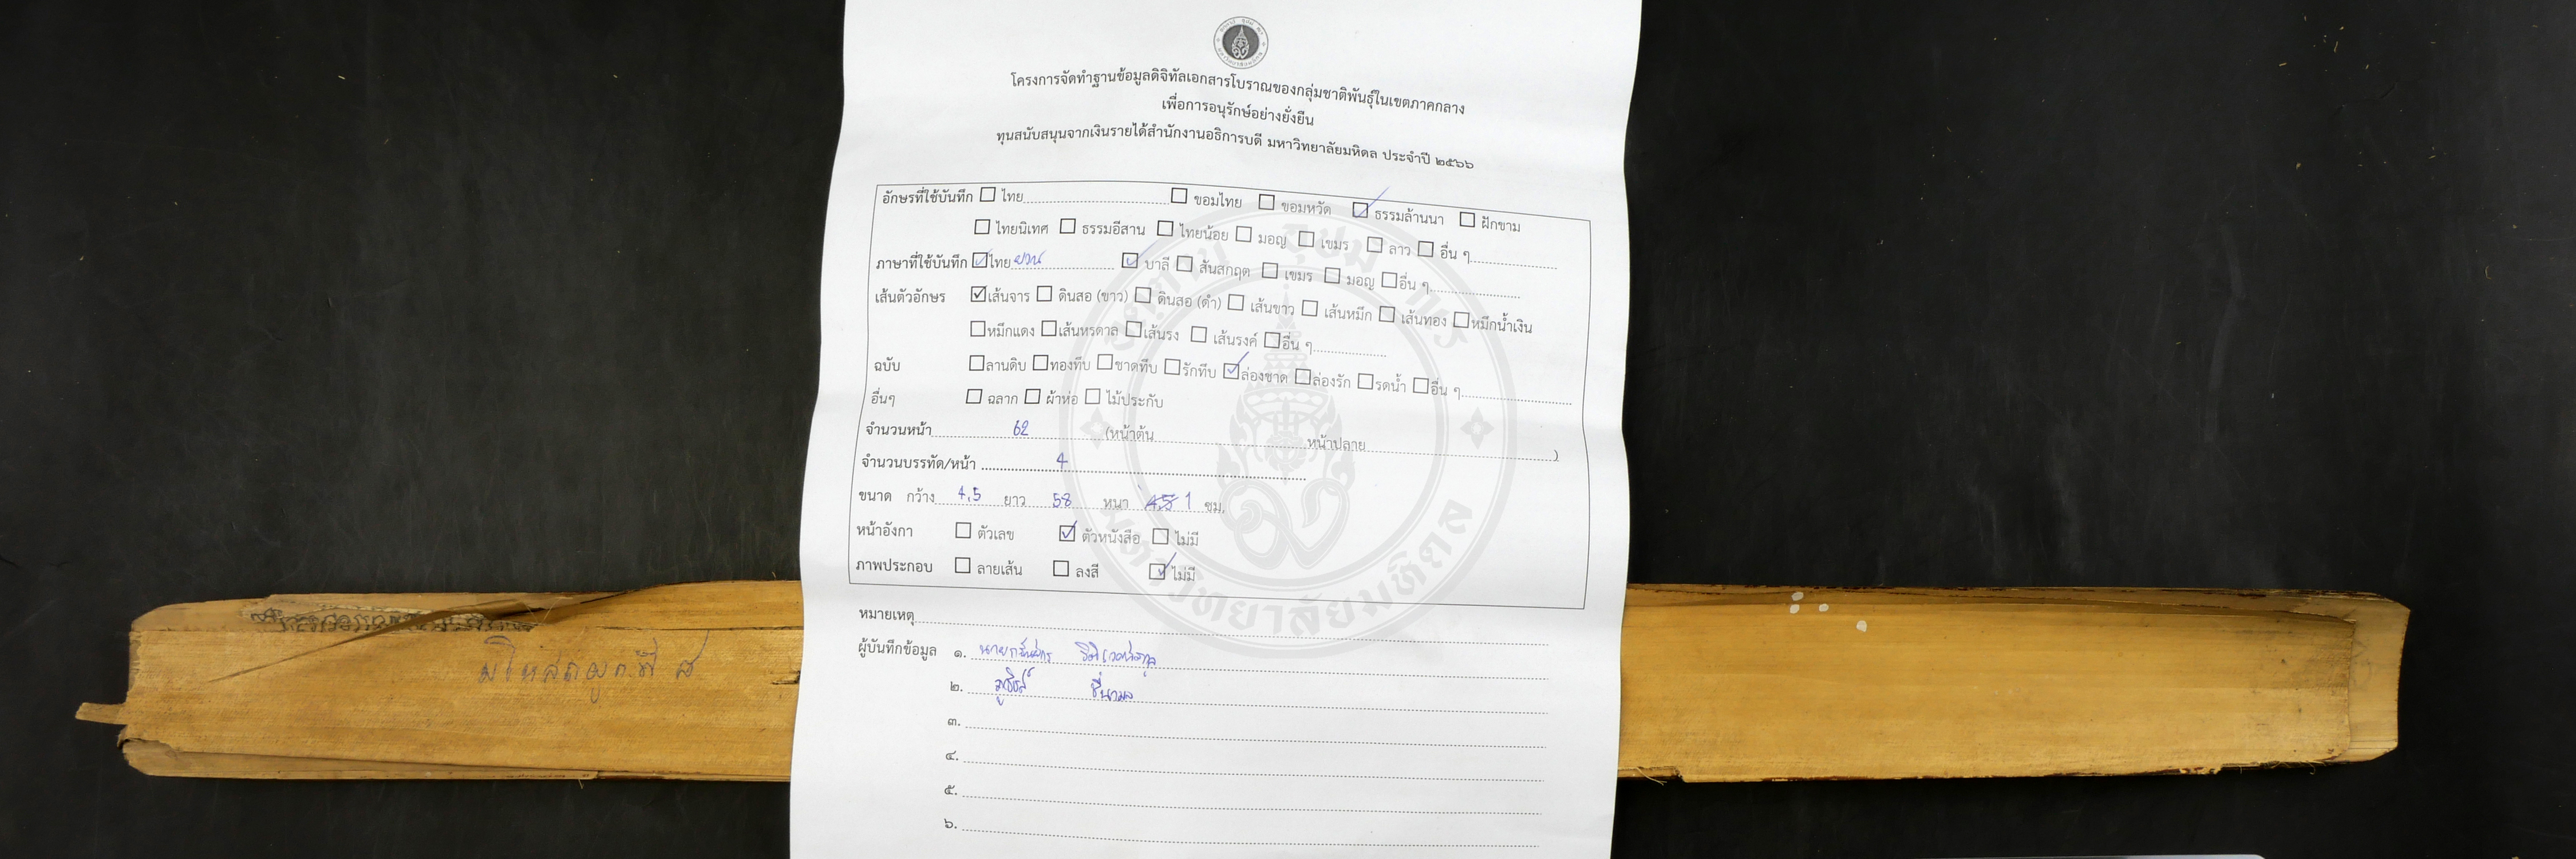 โครงการจัดทำฐานข้อมูลดิจิทัลเอกสารโบราณของกลุ่มชาติพันธุ์ในเขตภาคกลาง
เพื่อการอนุรักษ์อย่างยั่งยืน
ทุนสนับสนุนจากเงินรายได้สำนักงานอธิการบดี มหาวิทยาลัยมหิดล ประจำปี ๒๕๖๖
อักษรที่ใช้บันทึก ☐ ไทย ☐ ขอมไทย ☐ ขอมหวัด ☑ ธรรมล้านนา ☐ ฝักขาม
☐ ไทยนิเทศ ☐ ธรรมอีสาน ☐ ไทยน้อย ☐ มอญ ☐ เขมร ☐ ลาว ☐ อื่น ๆ
ภาษาที่ใช้บันทึก ☑ ไทย ยวน ☑ บาลี ☐ สันสกฤต ☐ เขมร ☐ มอญ ☐ อื่น ๆ
เส้นตัวอักษร ☑ เส้นจาร ☐ ดินสอ (ขาว) ☐ ดินสอ (ดำ) ☐ เส้นขาว ☐ เส้นหมึก ☐ เส้นทอง ☐ หมึกน้ำเงิน
☐ หมึกแดง ☐ เส้นหรดาล ☐ เส้นรง ☐ เส้นรงค์ ☐ อื่น ๆ
ฉบับ ☐ ลานดิบ ☐ ทองทึบ ☐ ชาดทึบ ☐ รักทึบ ☑ ล่องชาด ☐ ล่องรัก ☐ รดน้ำ ☐ อื่น ๆ
อื่นๆ ☐ ฉลาก ☐ ผ้าห่อ ☐ ไม้ประกับ
จำนวนหน้า 62 (หน้าต้น หน้าปลาย )
จำนวนบรรทัด/หน้า 4
ขนาด กว้าง 4.5 ยาว 58 หนา 1 ซม.
หน้าอังกา ☐ ตัวเลข ☑ ตัวหนังสือ ☐ ไม่มี
ภาพประกอบ ☐ ลายเส้น ☐ ลงสี ☑ ไม่มี
หมายเหตุ
ผู้บันทึกข้อมูล ๑. นาย
๒.
๓.
๔.
๕.
๖.
มโหสถผูกที่ ๘
มหาวิทยาลัยมหิดล